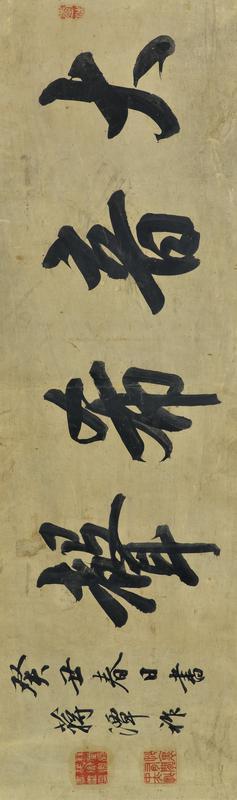 大音希聲
癸丑春日書
蔣潭祚